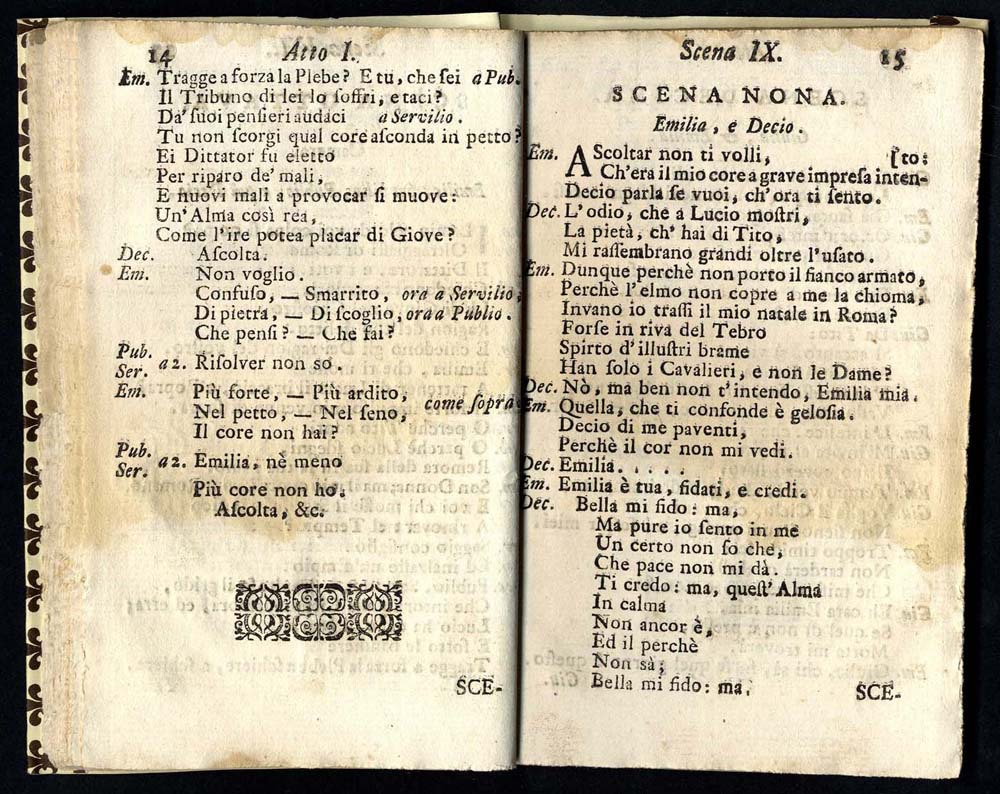 14 Atto I.
Em. Tragge a forza la Plebe? E tu, che ſei a Pub.
Il Tribuno di lei lo ſoffri, e taci?
Da' ſuoi penſieri audaci a Servilio.
Tu non ſcorgi qual core aſconda in petto?
Ei Dittator fu eletto
Per riparo de' mali,
E nuovi mali a provocar ſi muove:
Un' Alma così rea,
Come l'ire potea placar di Giove?
Dec. Aſcolta.
Em. Non voglio.
Confuſo, — Smarrito, ora a Servilio,
Di pietra, — Di ſcoglio, ora a Publio.
Che penſi? — Che fai?
Pub.
Ser. a 2. Riſolver non so.
Em. Più forte, — Più ardito,
Nel petto, — Nel ſeno, come ſopra.
Il core non hai?
Pub.
Ser. a 2. Emilia, nè meno
Più core non ho.
Aſcolta, &c.
SCE-
Scena IX. 15
SCENA NONA.
Emilia, e Decio.
Em. AScoltar non ti volli, [to:
Ch'era il mio core a grave impreſa inten-
Decio parla ſe vuoi, ch'ora ti ſento.
Dec. L'odio, che a Lucio moſtri,
La pietà, ch' hai di Tito,
Mi raſſembrano grandi oltre l'uſato.
Em. Dunque perchè non porto il fianco armato,
Perchè l'elmo non copre a me la chioma,
Invano io traſſi il mio natale in Roma?
Forſe in riva del Tebro
Spirto d'illuſtri brame
Han ſolo i Cavalieri, e non le Dame?
Dec. Nò, ma ben non t'intendo, Emilia mia.
Em. Quella, che ti confonde è geloſia.
Decio di me paventi,
Perchè il cor non mi vedi.
Dec. Emilia. . . . .
Em. Emilia è tua, fidati, e credi.
Dec. Bella mi fido: ma,
Ma pure io ſento in me
Un certo non ſo che,
Che pace non mi dà.
Ti credo: ma, queſt' Alma
In calma
Non ancor è,
Ed il perchè
Non sà;
Bella mi fido: ma.
SCE-